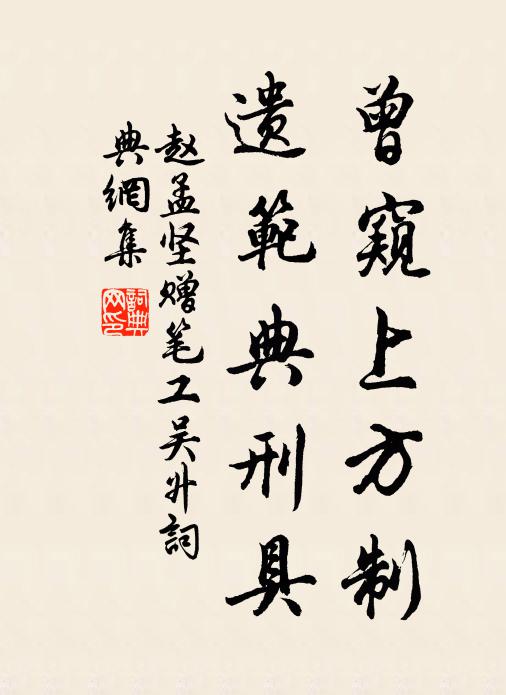 曾窥上方制
遗範典刑具
赵孟坚赠笔工吴升詞
典網集
詞典网印